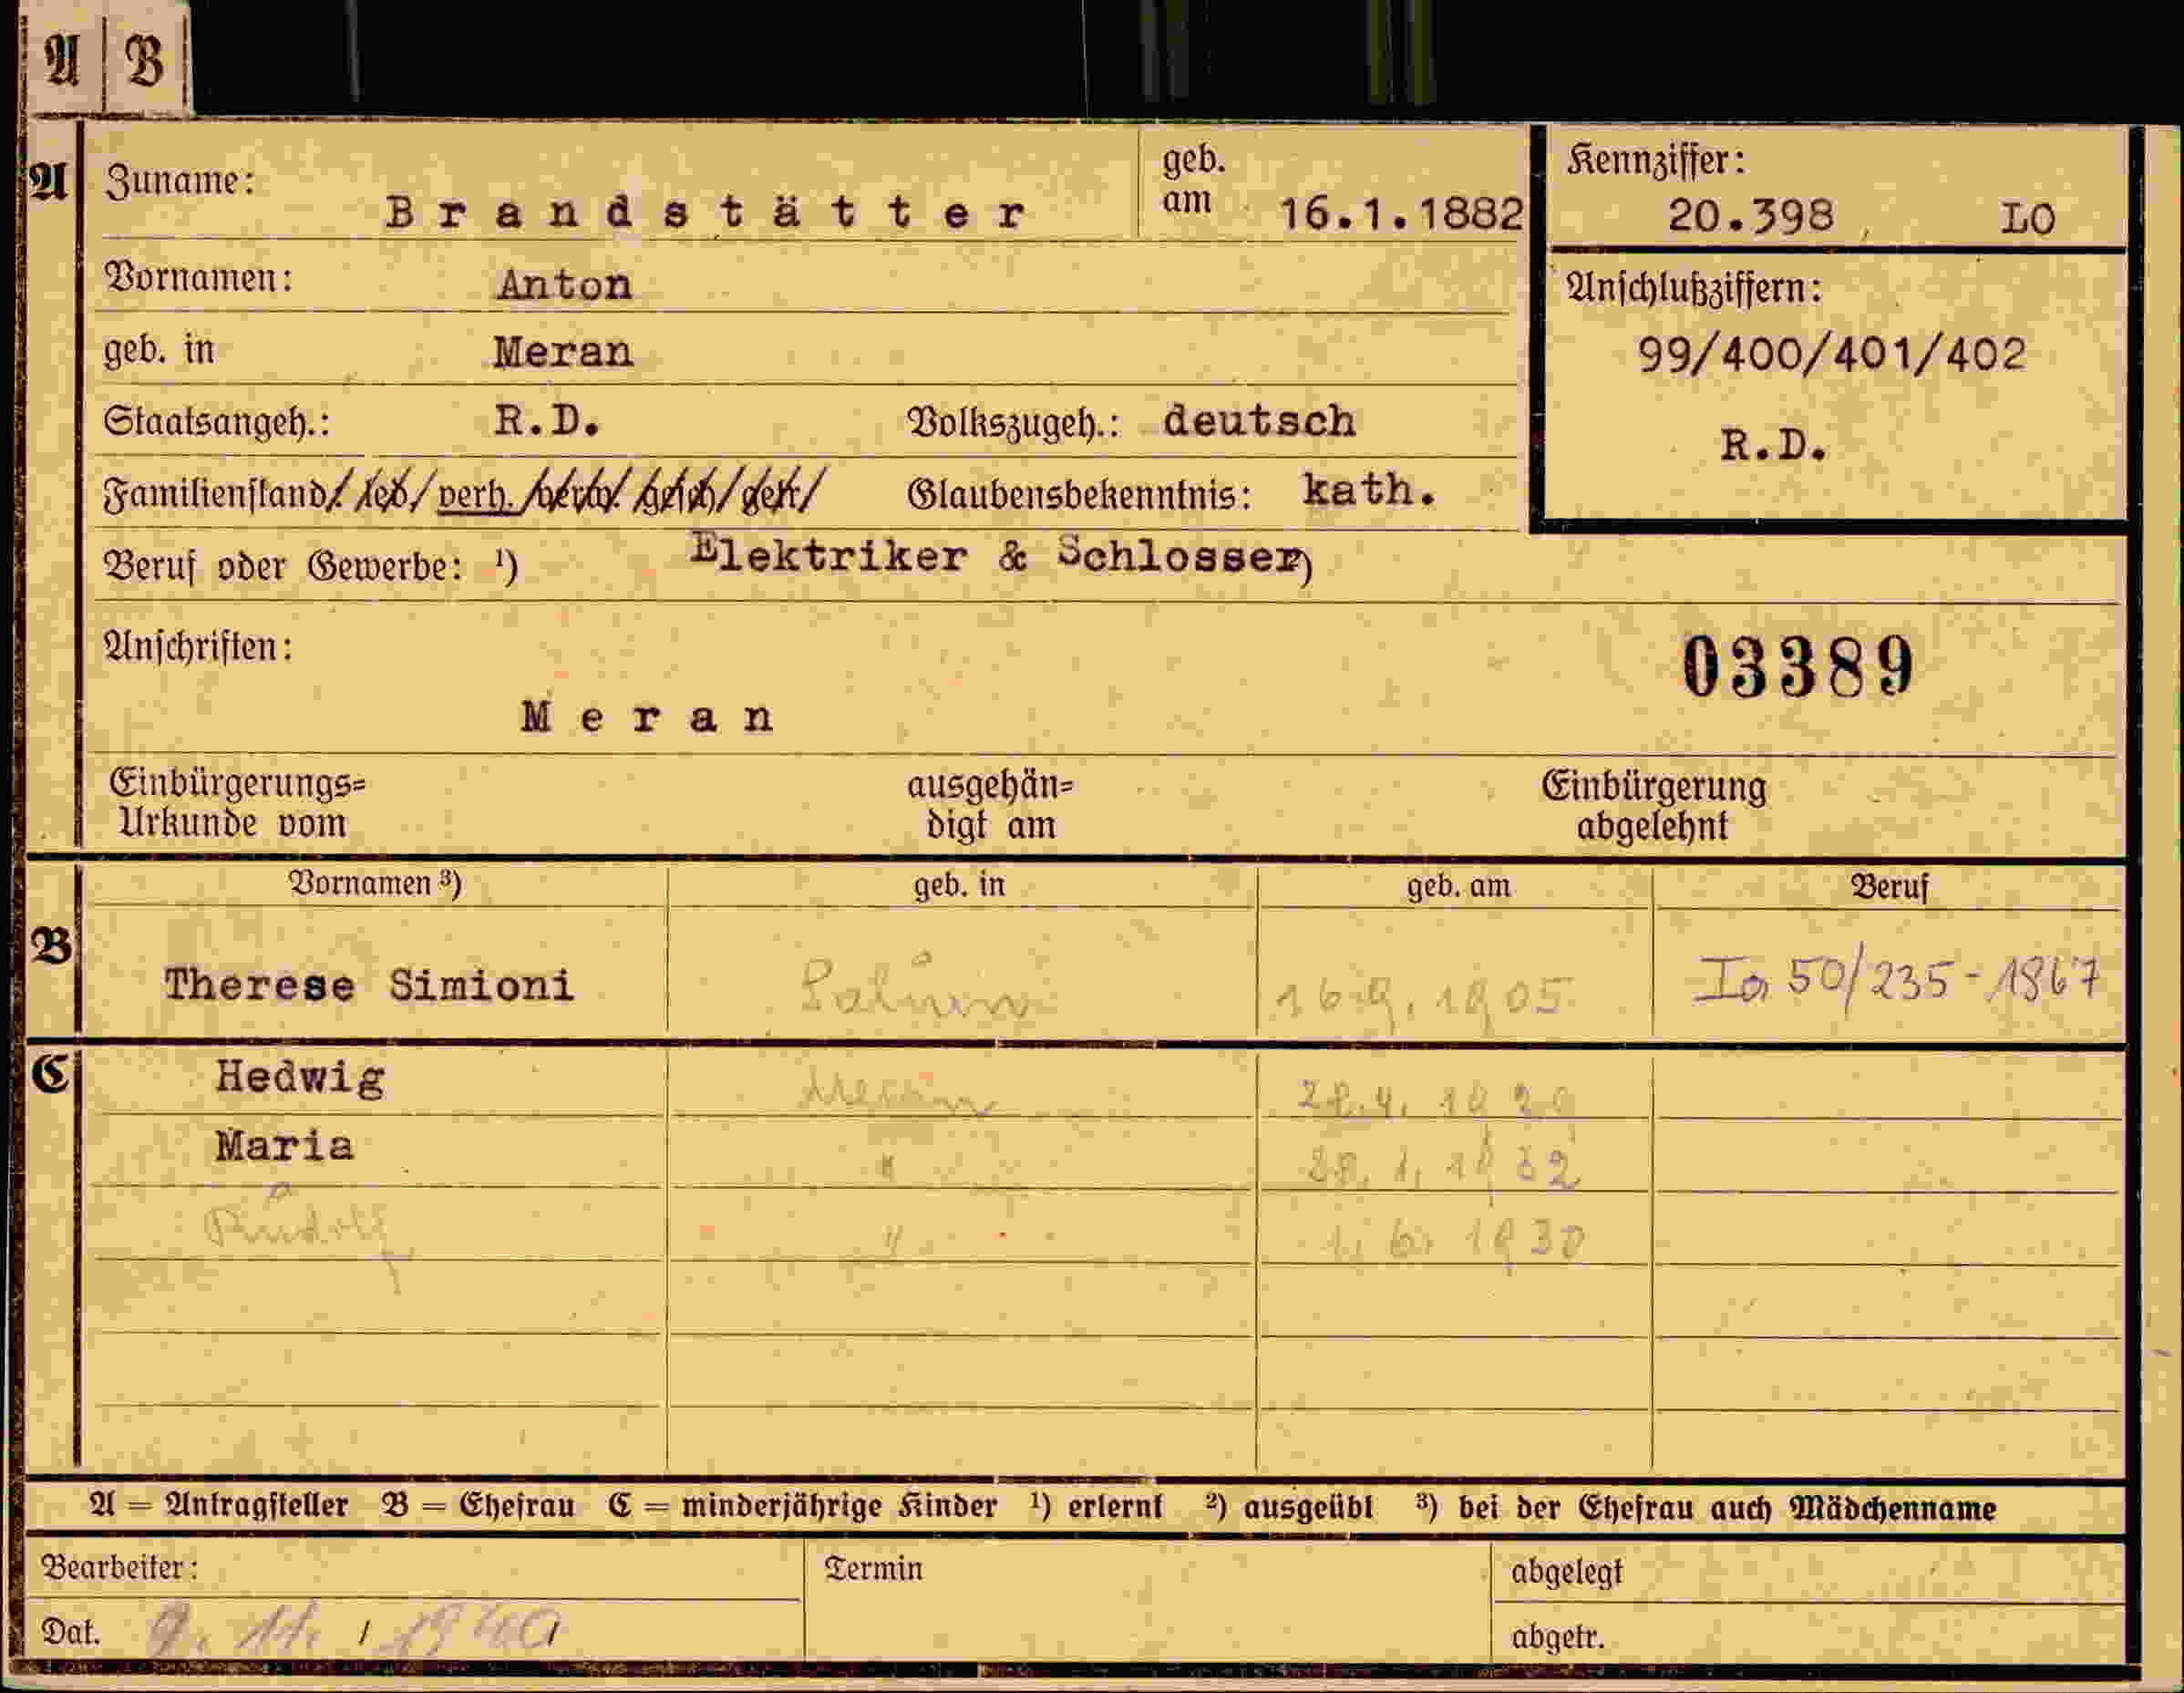 A B
A Zuname: Brandstätter geb. am 16.1.1882 Kennziffer: 20.398, LO
Vornamen: Anton Anschlußziffern:
geb. in Meran 99/400/401/402
Staatsangeh.: R.D. Volkszugeh.: deutsch R.D.
Familienstand/. led/ verh. /verw. /gesch/ getr/ Glaubensbekenntnis: kath.
Beruf oder Gewerbe: ¹) Elektriker & Schlosser)
Anschriften: 03389
Meran
Einbürgerungs= ausgehän= Einbürgerung
Urkunde vom digt am abgelehnt
Vornamen ³) geb. in geb. am Beruf
B Therese Simioni 16.9.1905 Ia 50/235-1867
C Hedwig Meran
Maria " 28.1.1932
Rudolf " 1.6.1930
A = Antragsteller B = Ehefrau C = minderjährige Kinder ¹) erlernt ²) ausgeübt ³) bei der Ehefrau auch Mädchenname
Bearbeiter: Termin abgelegt
Dat. 9.11.1940 abgetr.